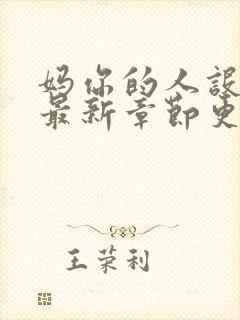 妈你的人设
最新章节更
王荣利